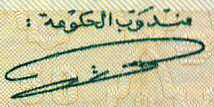 مندوب الحكومة :